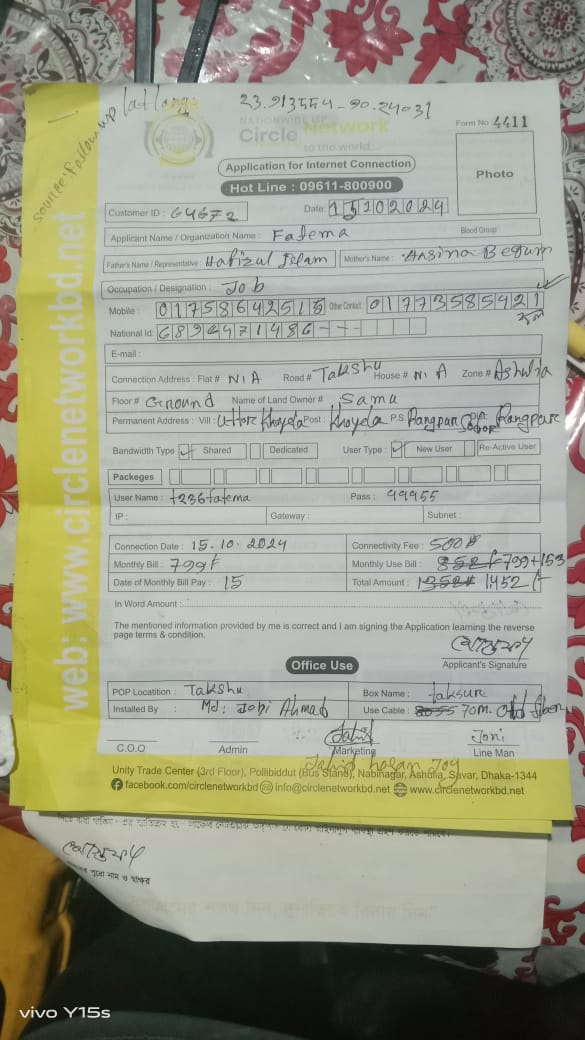 lat long
23.913554 - 90.24031
Source: Follow up
NATIONWIDE ISP
Circle Network
to the world...
Form No 4411
Application for Internet Connection
Hot Line : 09611-800900
Photo
Customer ID : 64672
Date: 15102024
Applicant Name / Organization Name : Fatema
Blood Group
Father's Name / Representative : Hafizul Islam Mother's Name : Hasina Begum
Occupation / Designation : Job
Mobile : 01758642515 Other Contact 01773585421
National Id: 6894471486---
E-mail :
Connection Address : Flat # N/A Road # Takshu House # N/A Zone # Ashulia
Floor # Ground Name of Land Owner # Sama
Permanent Address : Vill : Uttor Khoyda Post : Khoyda P.S. Rangpur Rangpur
Bandwidth Type ✓ Shared Dedicated User Type : ✓ New User Re-Active User
Packeges
User Name : t236fatema Pass : 99955
IP : Gateway : Subnet :
Connection Date : 15.10.2024 Connectivity Fee : 500
Monthly Bill : 799 Monthly Use Bill : 799+153
Date of Monthly Bill Pay : 15 Total Amount : 1452
In Word Amount :
The mentioned information provided by me is correct and I am signing the Application learning the reverse
page terms & condition.
Applicant's Signature
Office Use
POP Locatition : Takshu Box Name : taksure
Installed By : Md: Jobi Ahmad Use Cable : 70m.
Jahid Joni
C.O.O Admin Marketing Line Man
Jahid hasan Joy
Unity Trade Center (3rd Floor), Pollibiddut (Bus Stand), Nabinagar, Ashulia, Savar, Dhaka-1344
facebook.com/circlenetworkbd info@circlenetworkbd.net www.circlenetworkbd.net
web: www.circlenetworkbd.net
vivo Y15s